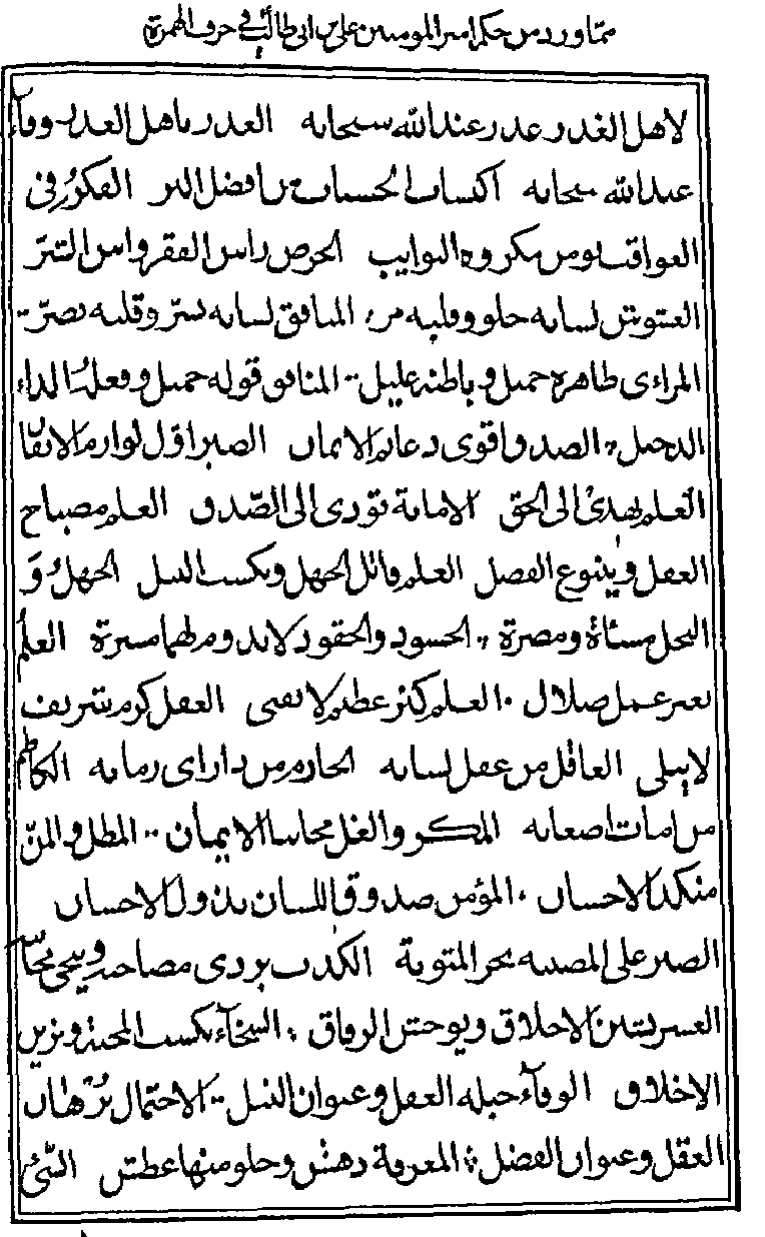 مما ورد من حكم امير المومنين على بن ابى طالب فى حرف الهمزة
لاهل الغدر غدر عند الله سبحانه الغدر باهل الغدر وفاء
عند الله سبحانه اكتساب الحسنات من افضل البر الفكر فى
العواقب يومن مكروه النوايب الحرص راس الفقر واس الشر
الغشوش لسانه حلو وقلبه مر، المنافق لسانه يسر وقلبه يضر
المراءى ظاهره جميل وباطنه عليل المنافق قوله جميل وفعله الداء
الدخيل، الصدق اقوى دعائم الايمان الصبر اول لوازم الايقان
العلم يهدى الى الحق الامانة تودى الى الصدق العلم مصباح
العقل وينبوع الفضل العلم قاتل الجهل ومكسب النبل الجهل و
البخل مساءة ومضرة، الحسود والحقود لا تدوم لهما مسرة العلم
بغير عمل ضلال العلم كنز عظيم لا يفنى العقل كرم شريف
لا يبلى العاقل من عقل لسانه الحازم من دارى زمانه الكاظم
من امات اضغانه المكر والغل مجانبا الايمان المطل والمن
منكدا الاحسان المؤمن صدوق اللسان بذول الاحسان
الصبر على المصيبة يجزل المثوبة الكذب يردى مصاحبه وينجى مجانبه
العسر يشين الاخلاق ويوحش الرفاق، السخاء يكسب المحبة ويزين
الاخلاق الوفاء حيله العقل وعنوان النبل الاحتمال برهان
العقل وعنوان الفضل المعرفة دهش وخلو منها عطش الشئ